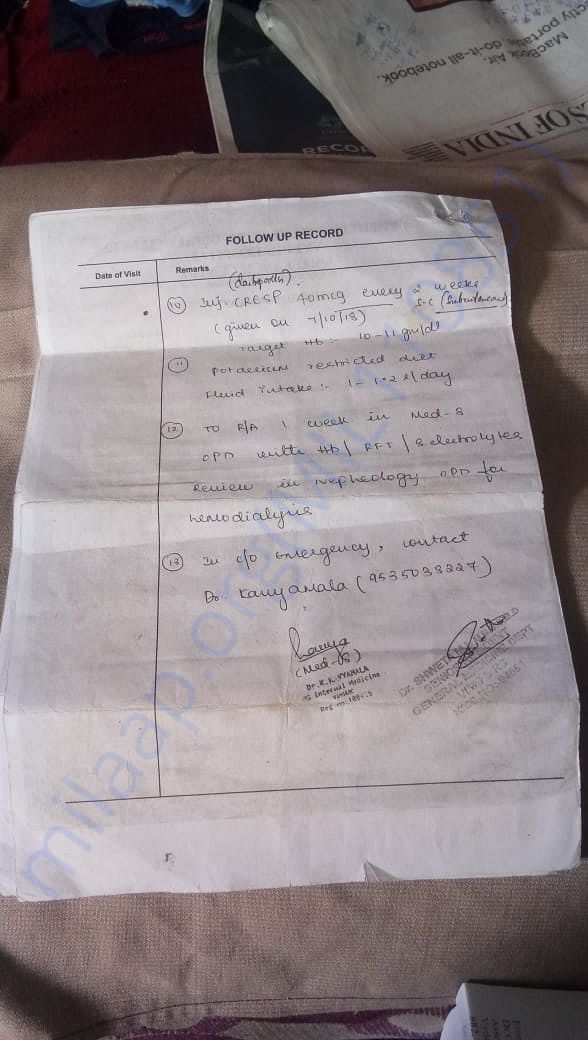 MacBook Air.
ctly portable, do-it-all notebook.
S OF INDIA
RECOR
FOLLOW UP RECORD
Date of Visit
Remarks
(10) Inj. CRESP 40mcg every 2 weeks
(given on 7/10/18) S-C (Subcutaneous)
Target Hb :- 10-11 gm/dl
11 potassium restricted diet
Fluid intake :- 1-1.2 l/day
12 To R/A 1 week in Med-8
OPD with Hb / RFT / S electrolytes
Review in Nephrology OPD for
hemodialysis
13 In c/o Emergency, contact
Dr. Kavyamala (9535038227)
(Med-8)
Internal Medicine
GENERAL DEPT
milaap.org